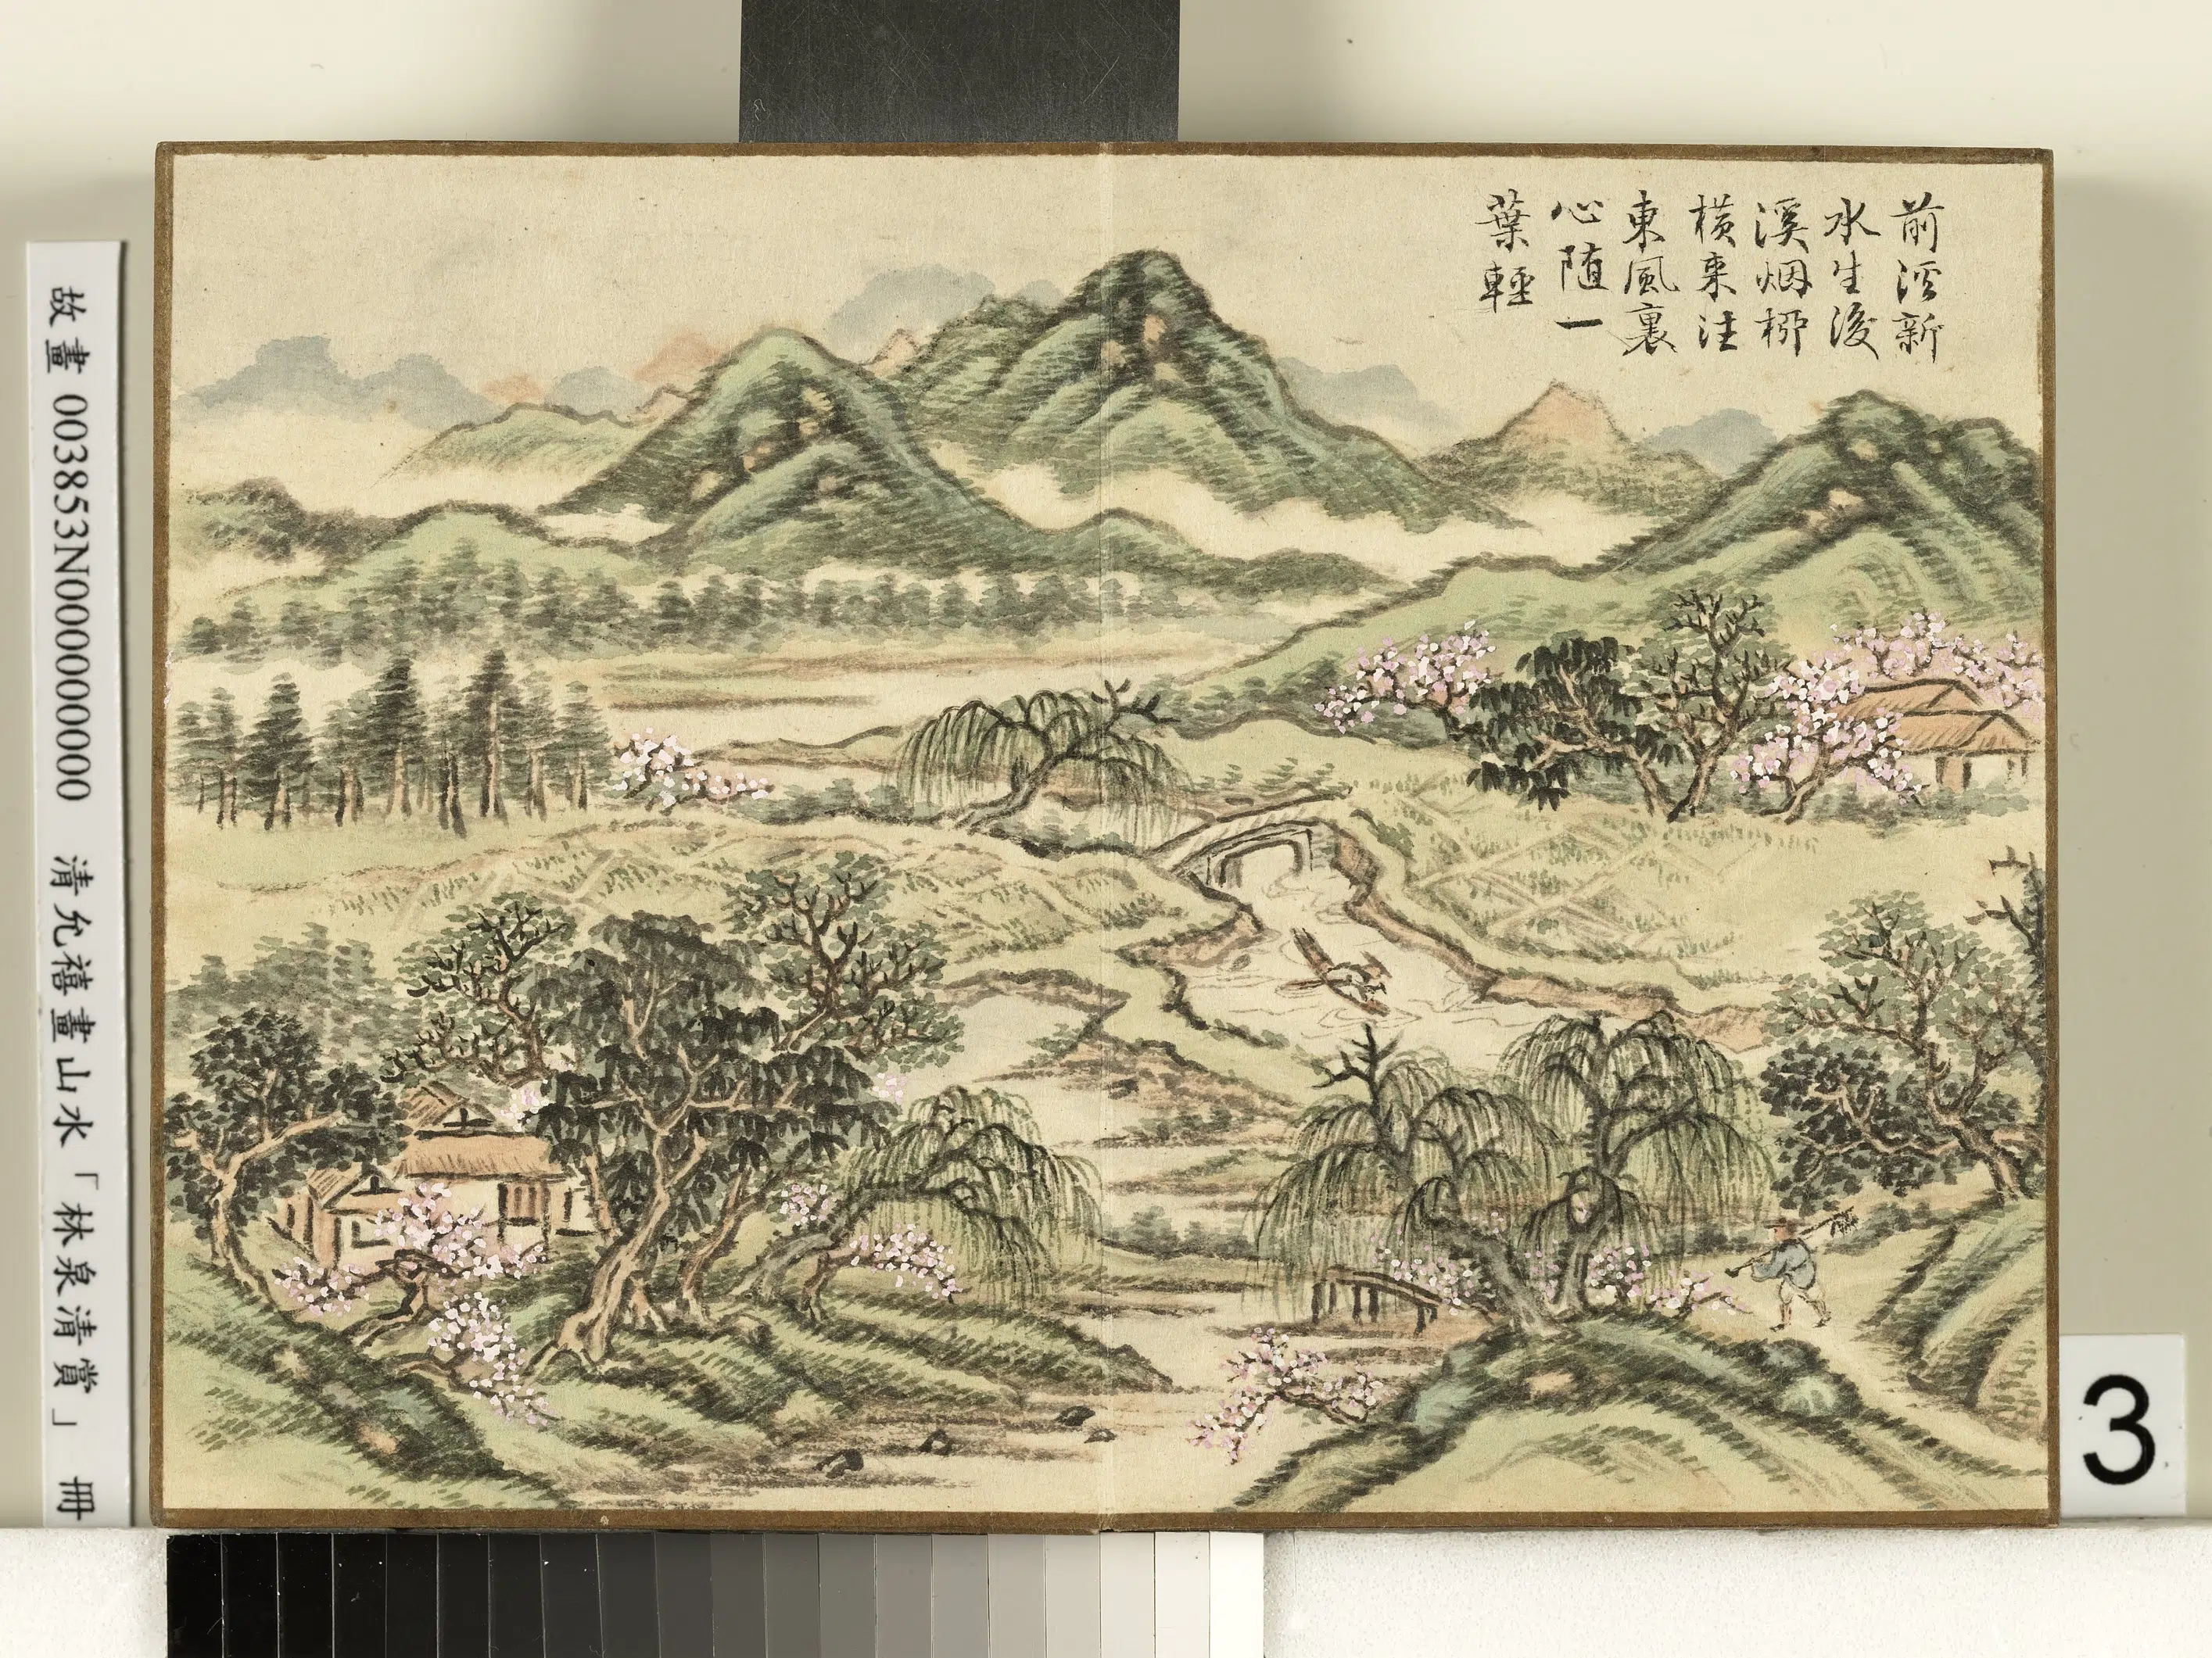 前溪新
水生後
溪烟柳
橫来往
東風裏
心随一
葉輕
故畫 003853N000000000 清允禧畫山水「林泉清賞」 冊
3